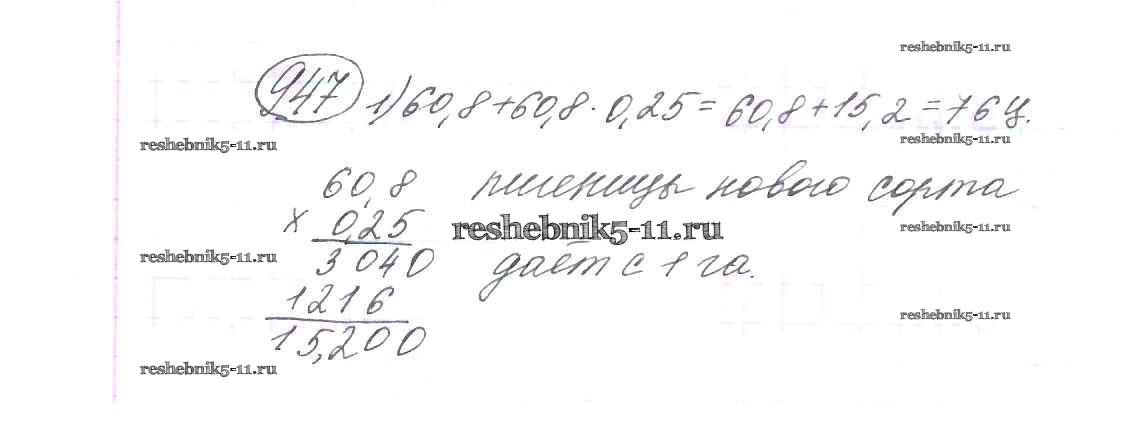 reshebnik5-11.ru
947 1) 60,8+60,8·0,25=60,8+15,2=76 ц.
reshebnik5-11.ru
reshebnik5-11.ru
60,8 пшеницы нового сорта
× 0,25
reshebnik5-11.ru
reshebnik5-11.ru
reshebnik5-11.ru
3040 даёт с 1 га.
1216
reshebnik5-11.ru
15,200
reshebnik5-11.ru